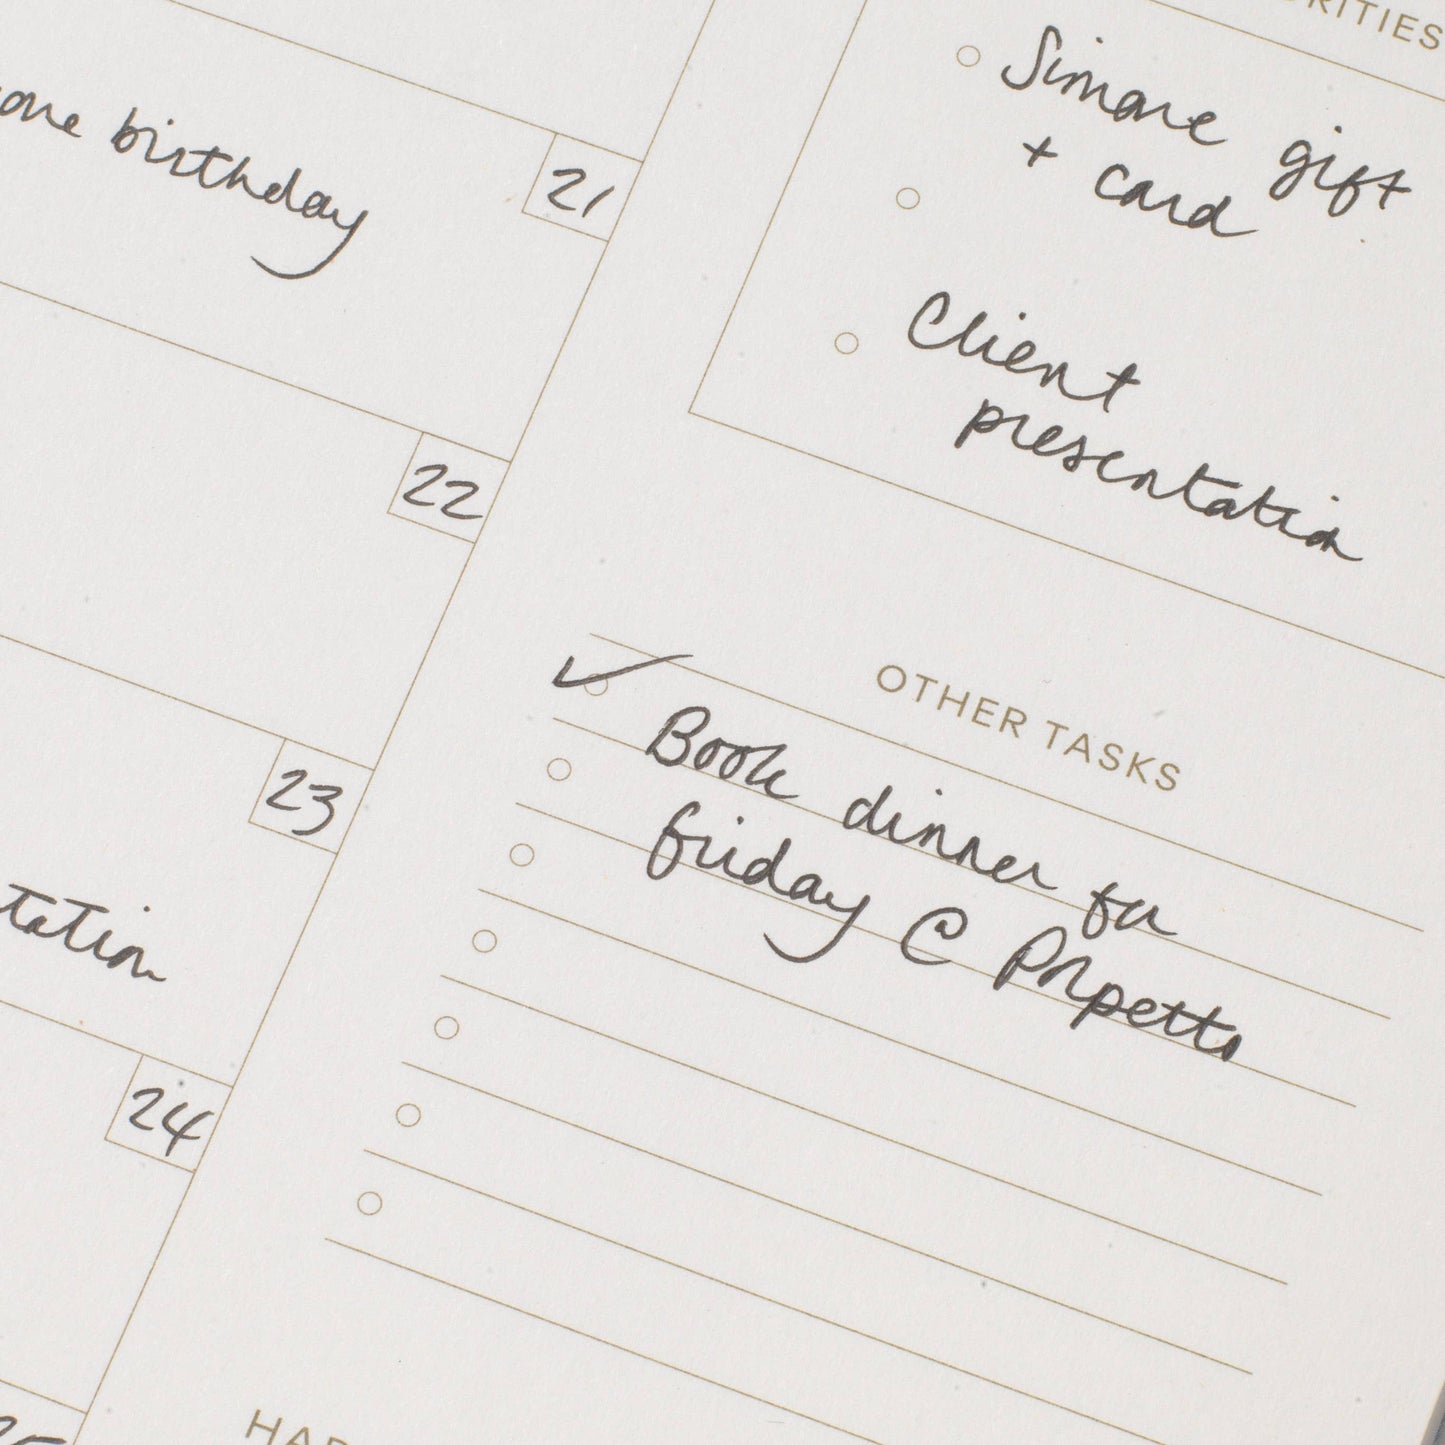 one birthday
21
22
23
tation
24
RITIES
Simone gift
+ card
Client
presentation
OTHER TASKS
Book dinner for
friday @ Polpetto